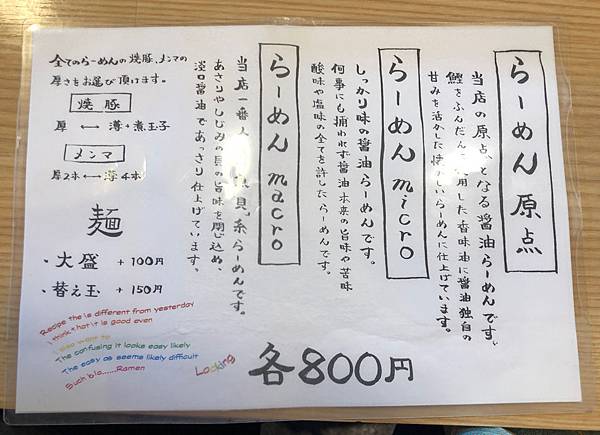 らーめん 原点
当店の原点となる醤油らーめんです。
鰹をふんだんに使用した香味油に醤油独自の
甘みを活かした懐かしいらーめんに仕上げています。
らーめん micro
しっかり味の醤油らーめんです。
何事にも捕われず醤油本来の旨味や苦味
酸味や塩味の全てを許したらーめんです。
らーめん macro
当店一番人 貝系らーめんです。
あさりやしじみの貝の旨味を閉じ込め、
淡口醤油であっさり仕上げています。
全てのらーめんの焼豚、メンマの
厚さをお選び頂けます。
焼豚
厚 ←→ 薄+煮玉子
メンマ
厚2本←→薄4本
麺
・大盛 +100円
・替え玉 +150円
Recipe the is different from yesterday
I think that it is good even
The confusing it looks easy likely
The easy as seems likely difficult
Such bla......Ramen
Looking
各800円